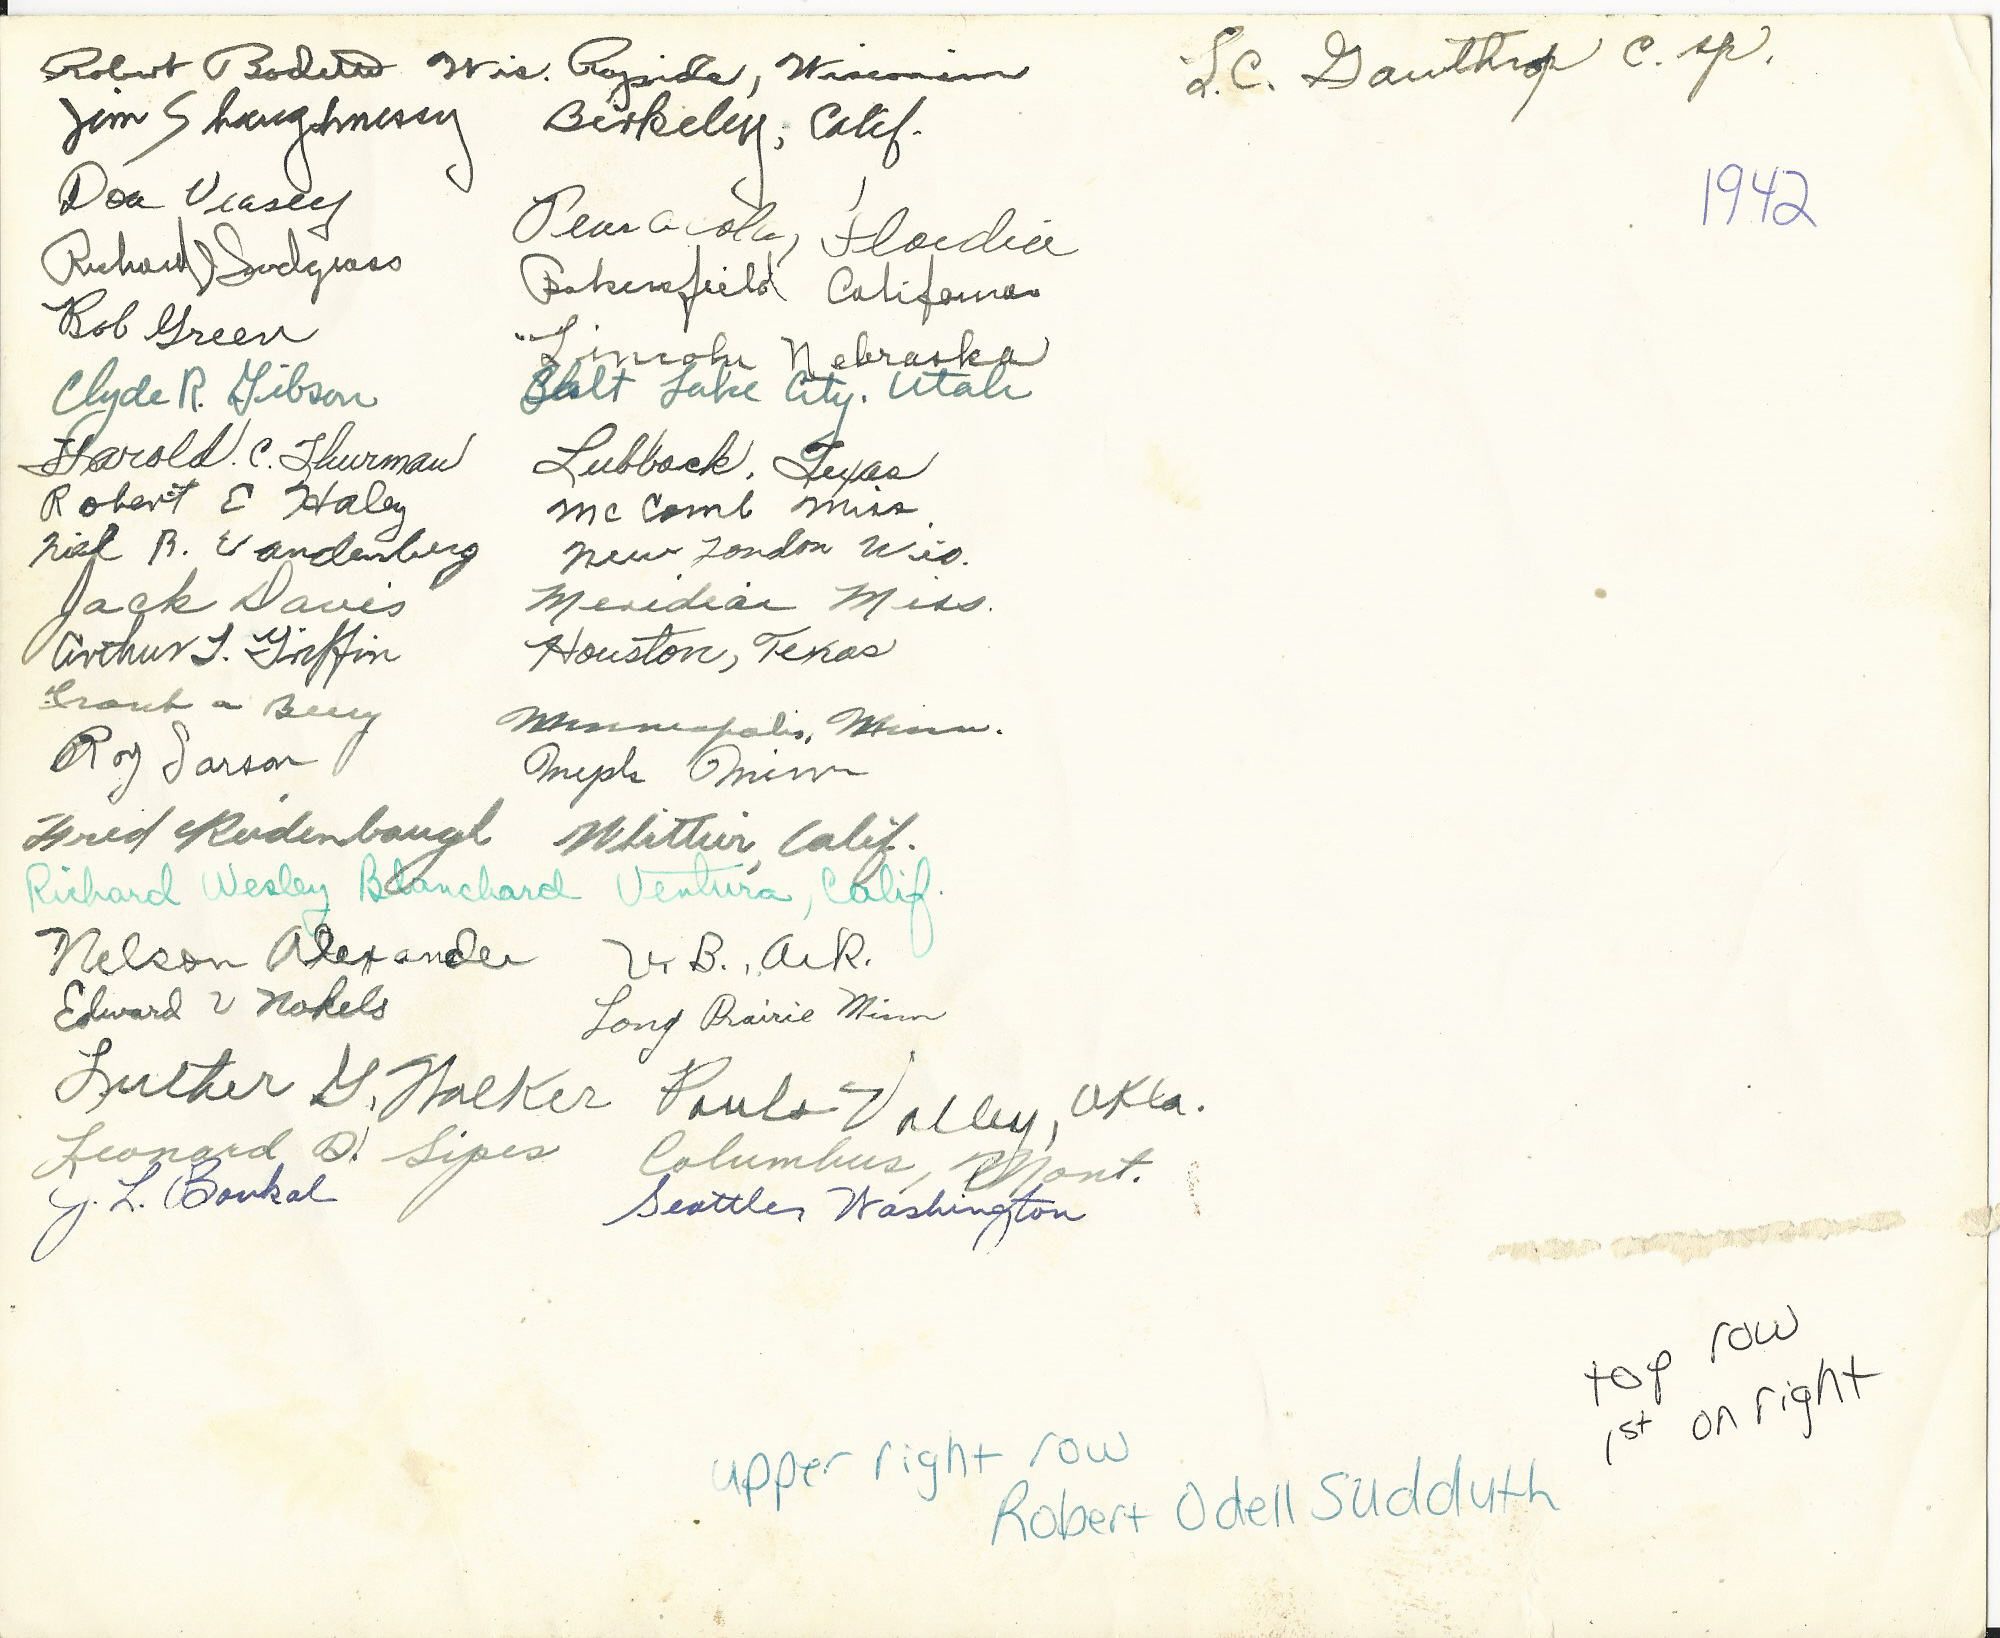 Robert Wis. Rapids, Wisconsin
L.C. Gauthrop C. Sp.
Jim Shaughnessy Berkeley, Calif.
1942
Don Veasey Pensacola, Florida
Richard J Snodgrass Bakersfield California
Bob Green Lincoln Nebraska
Clyde R. Gibson Salt Lake City, Utah
Harold C. Thurman Lubbock, Texas
Robert E Haley McComb Miss.
R. Vandenberg New London Wis.
Jack Davis Meridian Miss.
Arthur L. Griffin Houston, Texas
Frank a Berg Minneapolis, Minn.
Roy Larson Mpls Minn
Fred Rudenbaugh Whittier, Calif.
Richard Wesley Blanchard Ventura, Calif.
Nelson Alexander V. B., Ark.
Edward V Nokels Long Prairie Minn
Luther G. Walker Pauls Valley, Okla.
Leonard D. Sipes Columbus, Mont.
J. L. Boukal Seattle, Washington
top row
1st on right
upper right row
Robert Odell Sudduth